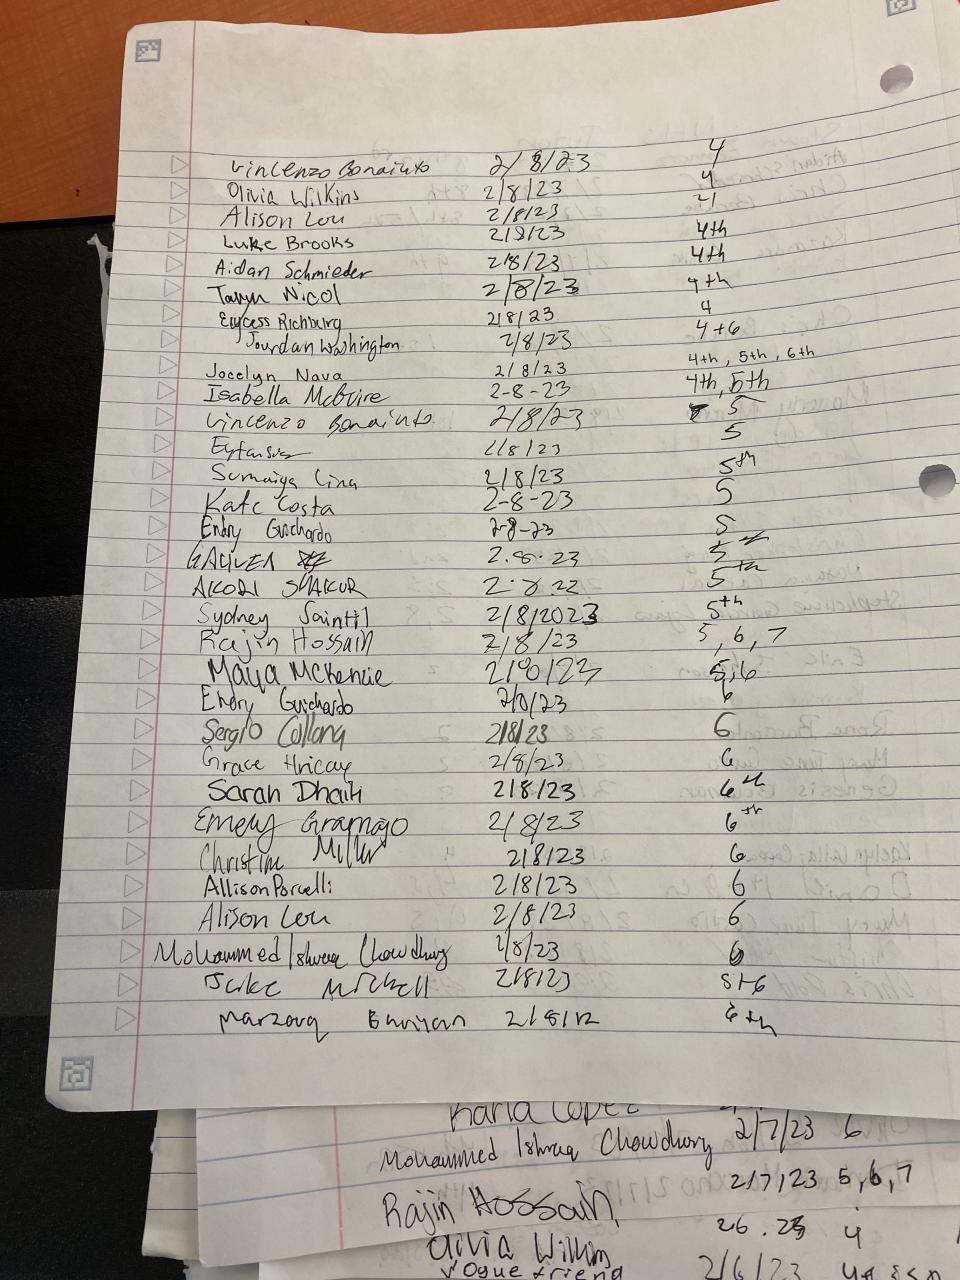 Vincenzo Bonaiuto 2/8/23 4
Olivia Wilkins 2/8/23 4
Alison Lou 2/8/23 4
Luke Brooks 2/8/23 4th
Aidan Schmieder 2/8/23 4th
Taryn Nicol 2/8/23 4th
Richburg 2/8/23 4
Jourdan Washington 2/8/23 4+6
Jocelyn Nava 2/8/23 4th, 5th, 6th
Isabella McGuire 2-8-23 4th, 5th
Vincenzo Bonaiuto 2/8/23 5
2/8/23 5
Sumaiya Lina 2/8/23 5th
Kate Costa 2-8-23 5
Endry Guichardo 2-8-23 5
2.8.23 5th
AKORI SHAKUR 2.8.22 5th
Sydney Saintil 2/8/2023 5th
Rajin Hossain 2/8/23 5, 6, 7
Maya McKenzie 2/8/23 5,6
Endry Guichardo 2/8/23 6
Sergio Collong 2/8/23 6
Grace Hricay 2/8/23 6
Sarah Dhaiti 2/8/23 6th
Emely Gramajo 2/8/23 6th
Christine Miller 2/8/23 6
Allison Porcelli 2/8/23 6
Alison Lou 2/8/23 6
Mohammed Ishraq Chowdhury 2/8/23 6
Jake Mitchell 2/8/23 5+6
Marzouq Bhuiyan 2/8/12 6th
Karla Lopez
Mohammed Ishraq Chowdhury 2/7/23 6
Rajin Hossain 2/7/23 5, 6, 7
Olivia Wilkins 26.23 4
Vogue friend 2/6/23